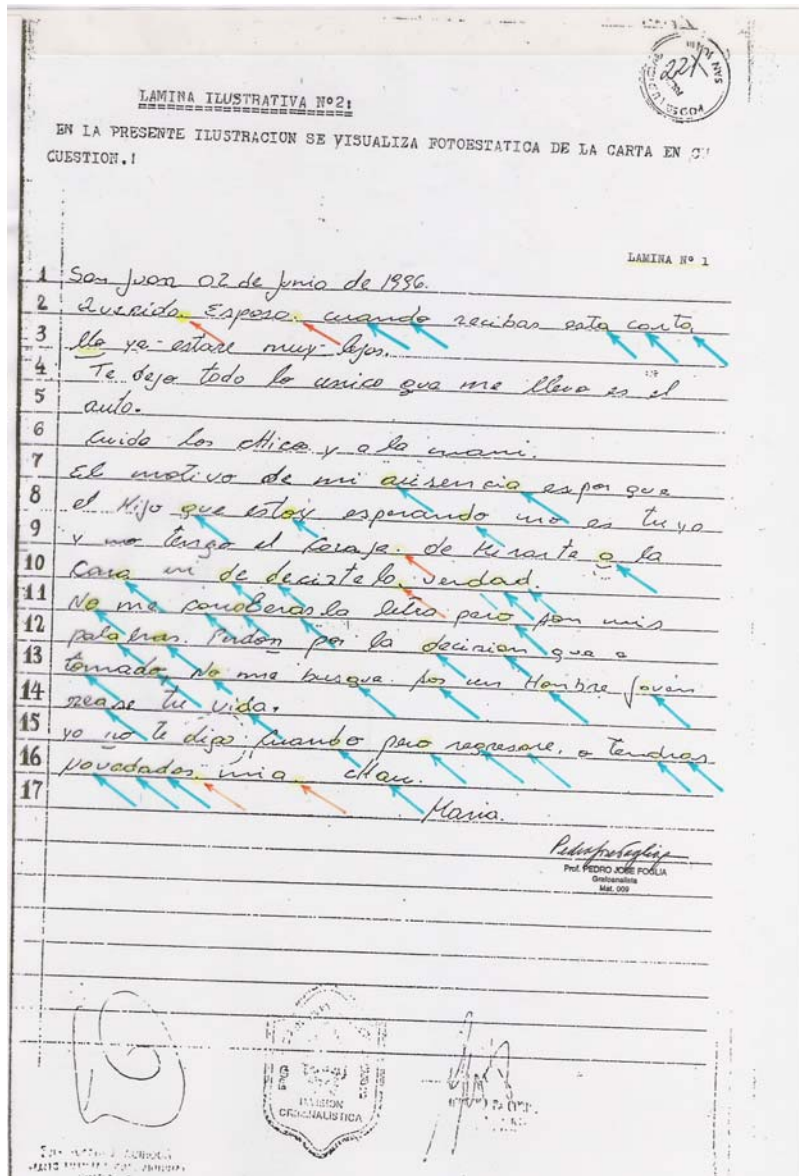 221
SAN JUAN
LAMINA ILUSTRATIVA Nº2:
EN LA PRESENTE ILUSTRACION SE VISUALIZA FOTOESTATICA DE LA CARTA EN
CUESTION.!
LAMINA Nº 1
1 San Juan 02 de Junio de 1996.
2 Querida Esposa. cuando recibas esta carta
3 llo ya estare muy lejos.
4 Te dejo todo lo unico que me llevo es el
5 auto.
6 Cuida los cHicos y a la mami.
7 El motivo de mi ausencia es por que
8 el Hijo que estoy esperando no es tuyo
9 y no tengo el coraje. de Mirarte a la
10 Cara ni de decirte la, verdad.
11 No me conoseras la letra pero son mis
12 palabras. Perdon por la decision que e
13 tomado, No me busque. sos un Hombre joven
14 rease tu vida.
15 yo no te digo, cuando pero regresare, o tendras
16 novedades mia cHau.
17 Maria.
Prof. PEDRO JOSE FOGLIA
Grafoanalista
Mat. 009
DIVISION
CRIMINALISTICA